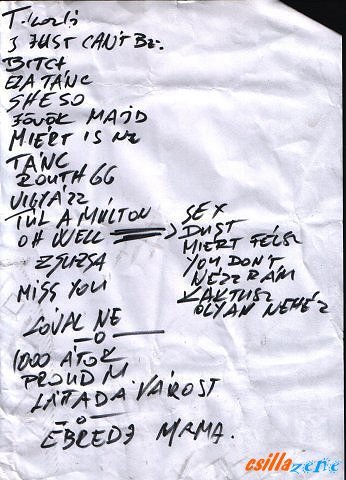 I JUST CAN'T BE.
BITCH
EZ A TÁNC
SHE SO
JÖVÖK MAJD
MIÉRT IS NE
TÁNC
ROUTH 66
VIGYÁZZ
TÚL A MÚLTON
OH WELL
ZSUZSA
MISS YOU
SEX
DUST
MIÉRT FÉLSZ
YOU DON'T
NÉZZ RÁM
KAKTUSZ
OLYAN NEHÉZ
LÓVAL NE
1000 ÁTOK
PROUD M
LÁTTAD A VÁROST
ÉBREDJ MAMA.
csillazene